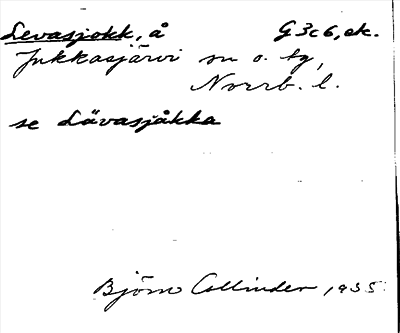 Levasjokk, å G 3c6, ek.
Jukkasjärvi sn o. tg,
Norrb. l.
se Lävasjåkka
Björn Collinder, 1935